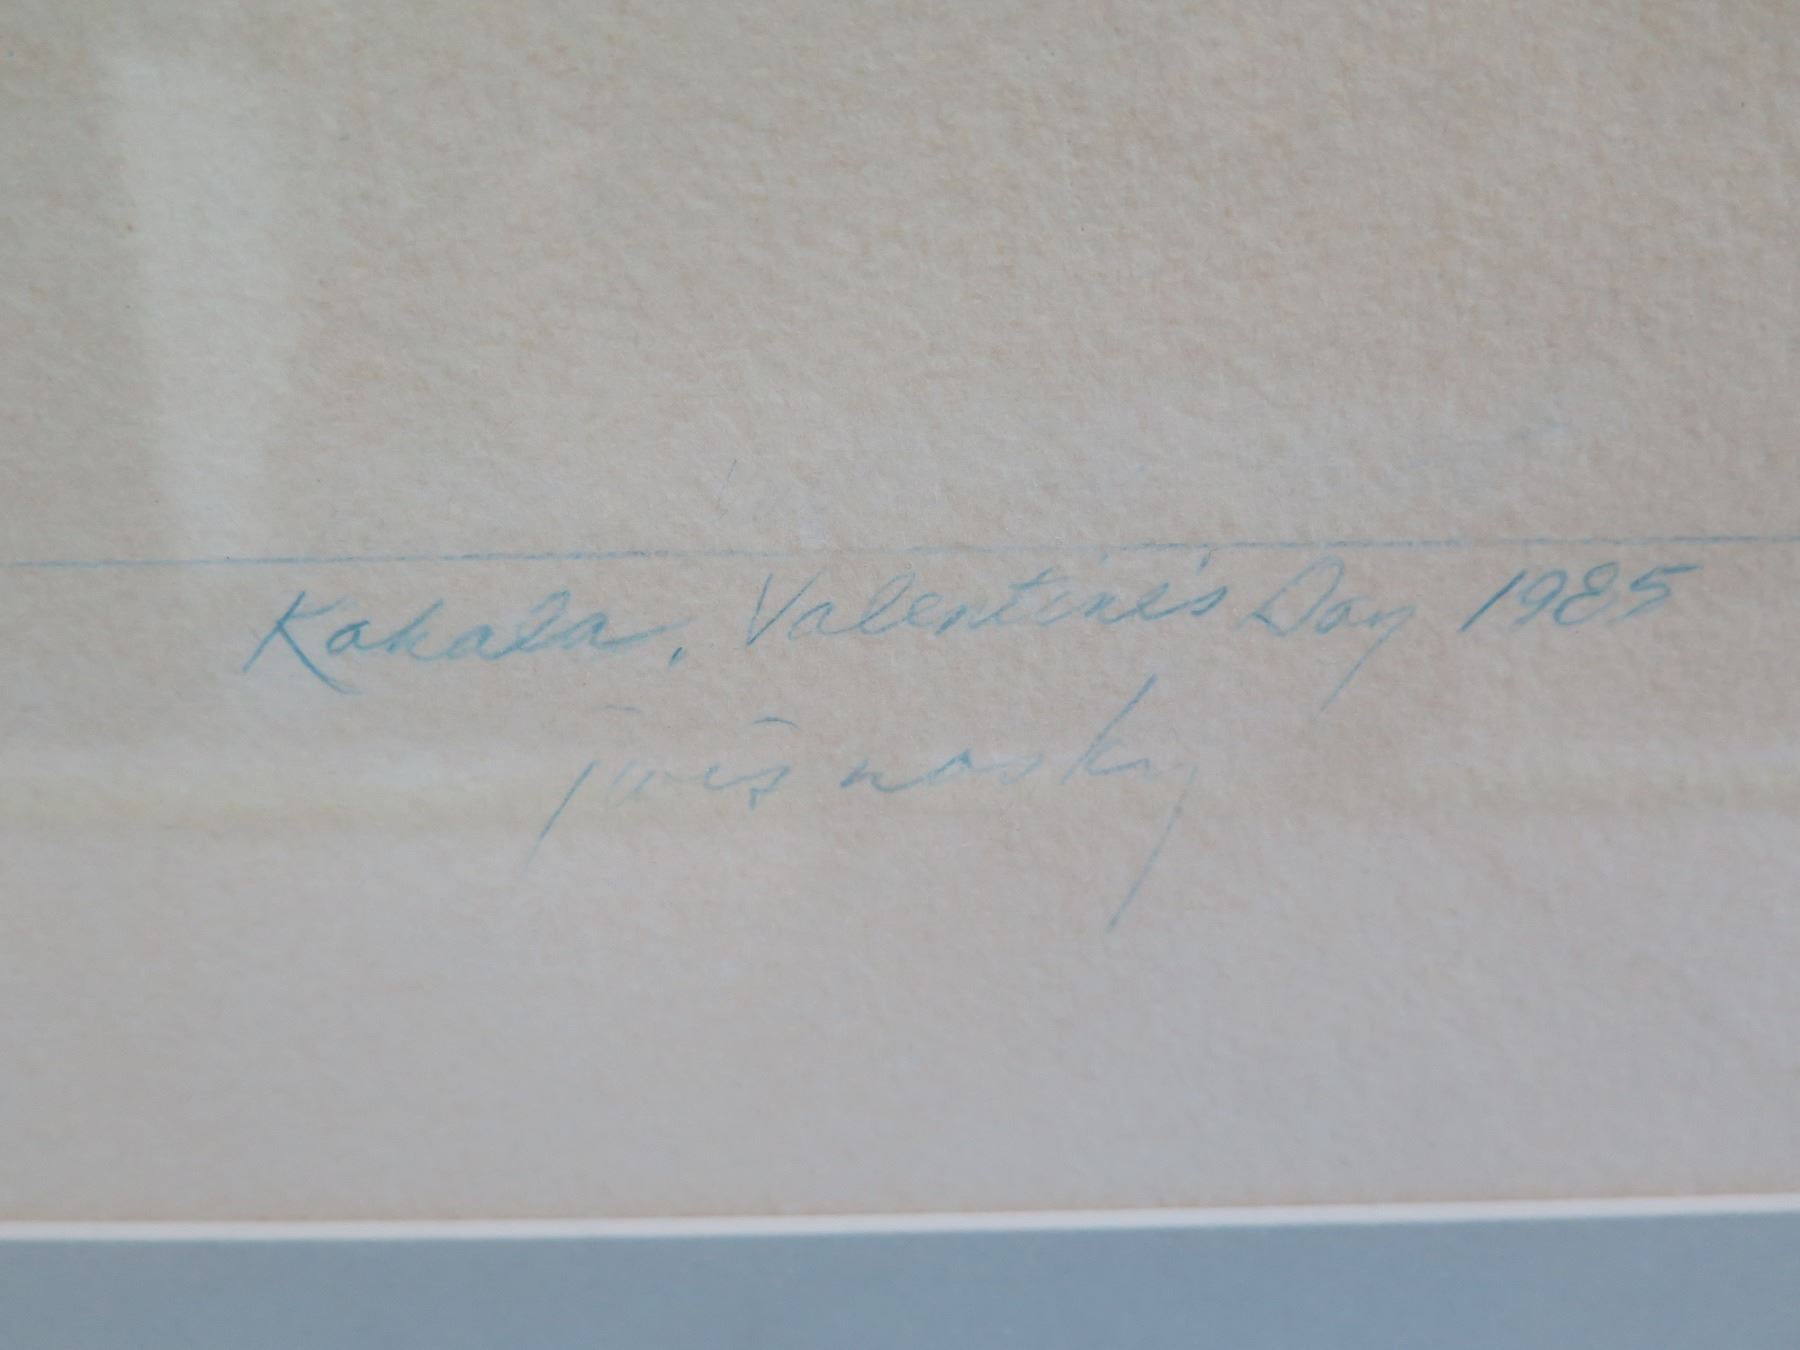 Kahala, Valentine's Day 1985